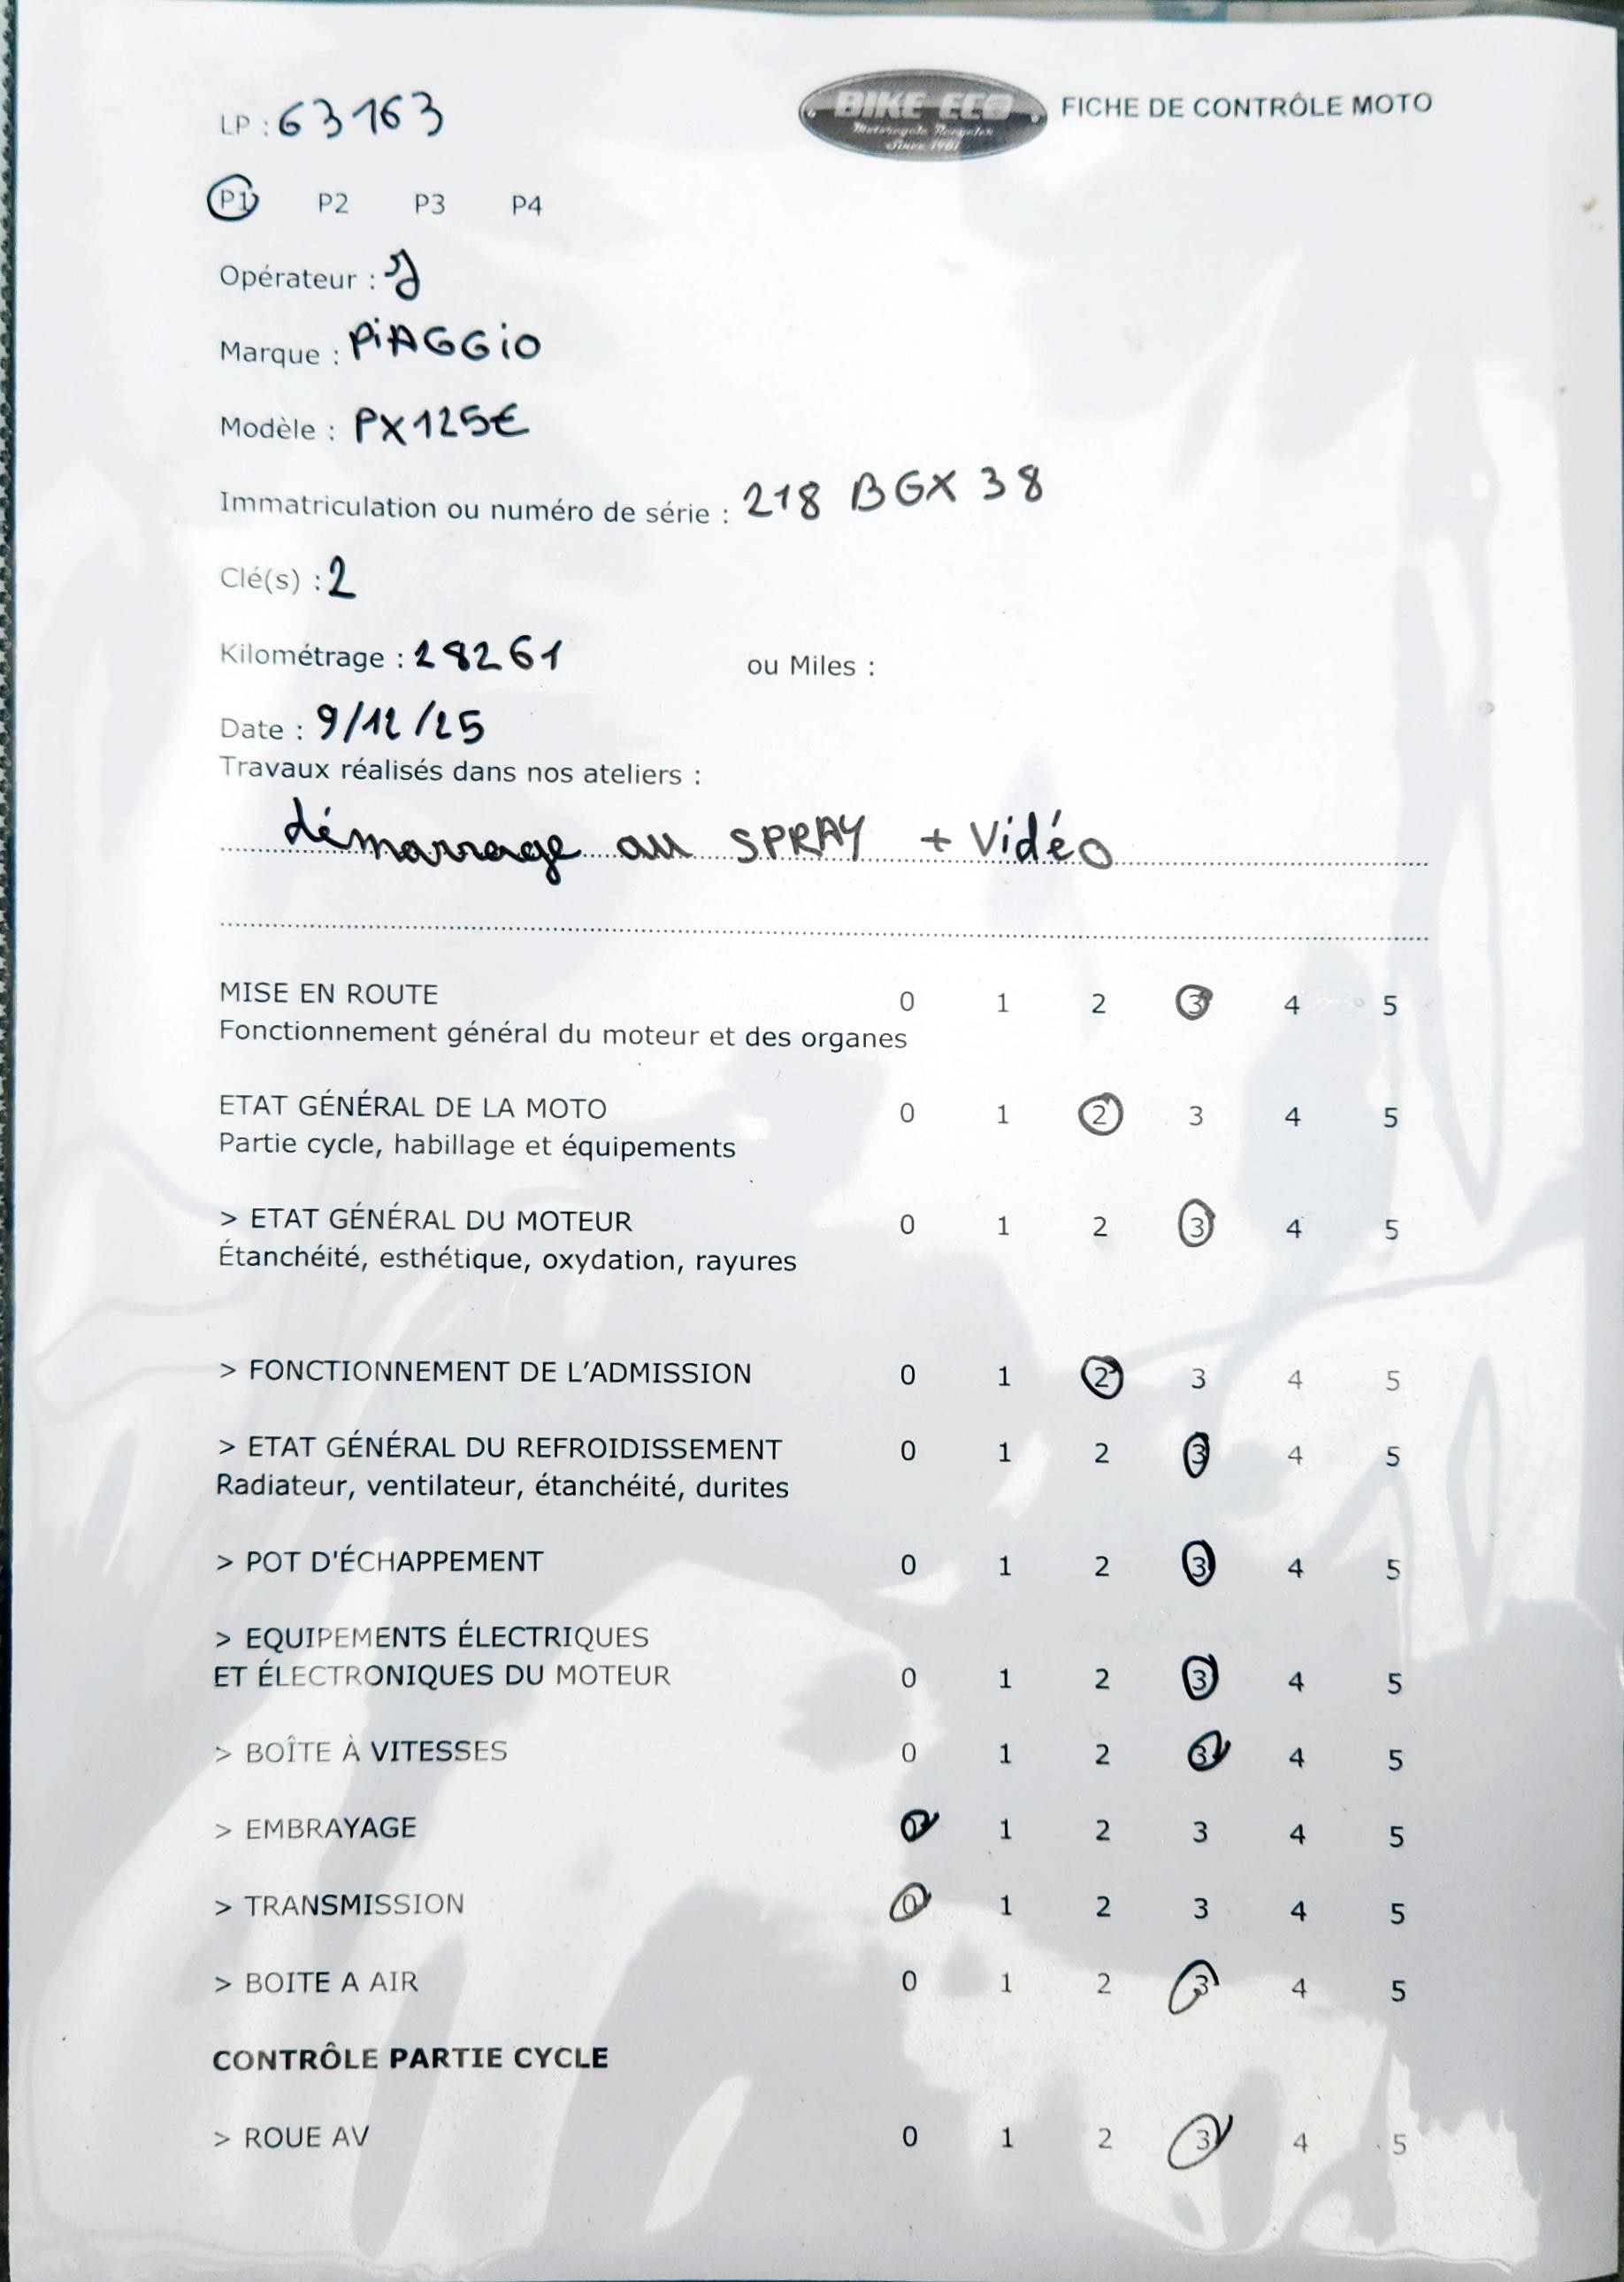 LP : 63163
BIKE ECO
Motorcycle Recycler
Since 1981
FICHE DE CONTRÔLE MOTO
P1 P2 P3 P4
Opérateur : J
Marque : PiAGGiO
Modèle : PX125E
Immatriculation ou numéro de série : 218 BGX 38
Clé(s) : 2
Kilométrage : 28261 ou Miles :
Date : 9/12/25
Travaux réalisés dans nos ateliers :
démarrage au SPRAY + Vidéo
MISE EN ROUTE 0 1 2 3 4 5
Fonctionnement général du moteur et des organes
ETAT GÉNÉRAL DE LA MOTO 0 1 2 3 4 5
Partie cycle, habillage et équipements
> ETAT GÉNÉRAL DU MOTEUR 0 1 2 3 4 5
Étanchéité, esthétique, oxydation, rayures
> FONCTIONNEMENT DE L'ADMISSION 0 1 2 3 4 5
> ETAT GÉNÉRAL DU REFROIDISSEMENT 0 1 2 3 4 5
Radiateur, ventilateur, étanchéité, durites
> POT D'ÉCHAPPEMENT 0 1 2 3 4 5
> EQUIPEMENTS ÉLECTRIQUES
ET ÉLECTRONIQUES DU MOTEUR 0 1 2 3 4 5
> BOÎTE À VITESSES 0 1 2 3 4 5
> EMBRAYAGE 0 1 2 3 4 5
> TRANSMISSION 0 1 2 3 4 5
> BOITE A AIR 0 1 2 3 4 5
CONTRÔLE PARTIE CYCLE
> ROUE AV 0 1 2 3 4 5